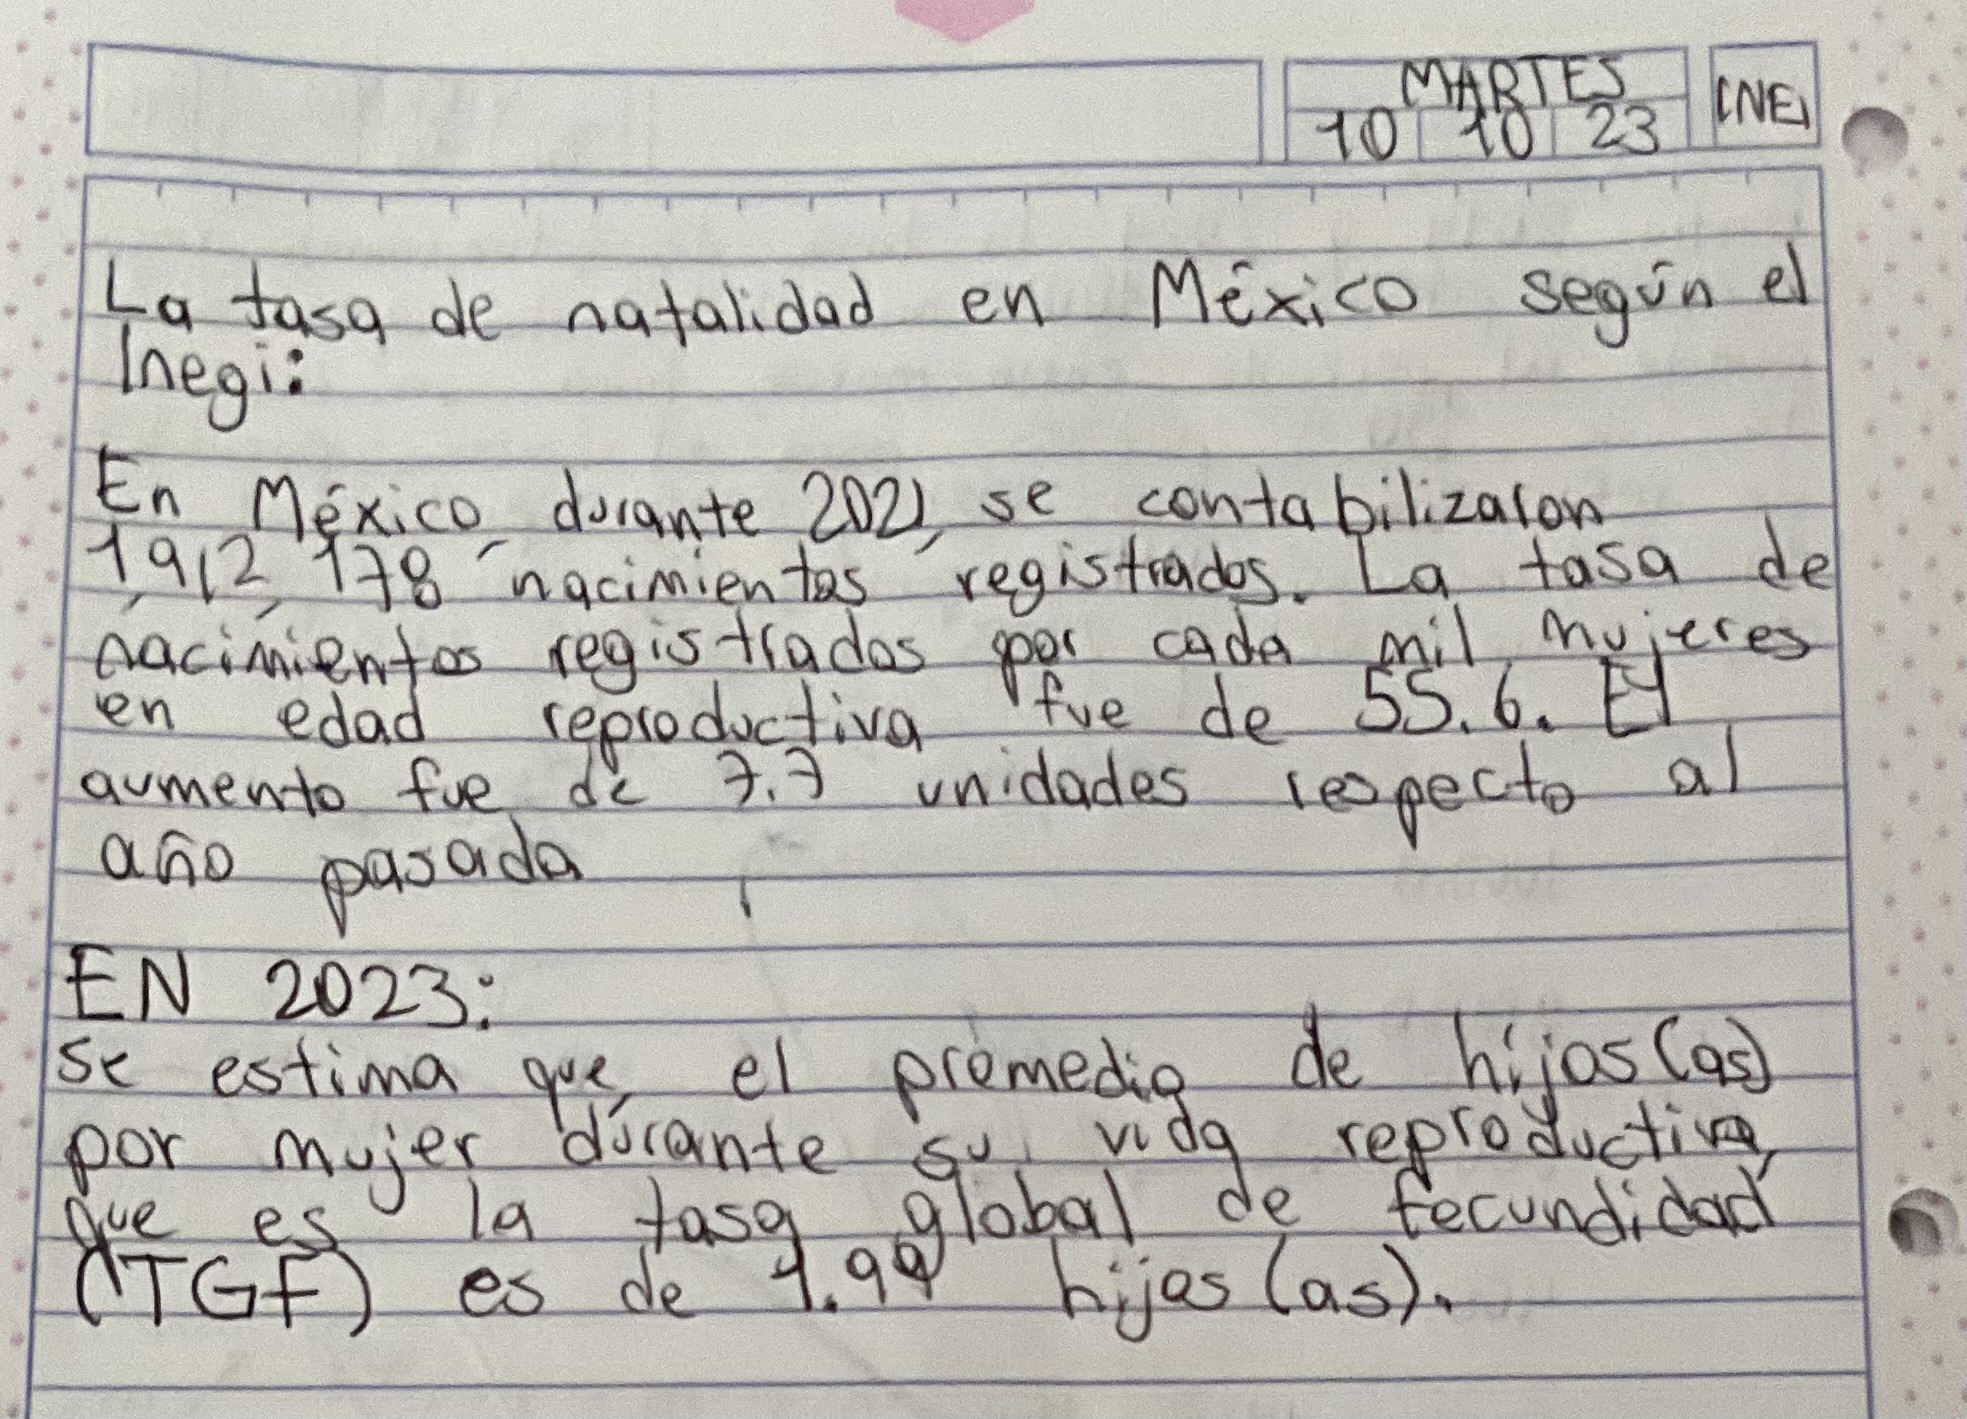 MARTES
10 10 23
INE
La tasa de natalidad en México según el
Inegi:
En México, durante 2021, se contabilizaron
1,912,178 nacimientos registrados. La tasa de
nacimientos registrados por cada mil mujeres
en edad reproductiva fue de 55.6. El
aumento fue de 7.7 unidades respecto al
año pasado
EN 2023:
se estima que el promedio de hijos(as)
por mujer durante su vida reproductiva,
que es la tasa global de fecundidad
(TGF) es de 1.99 hijos (as).